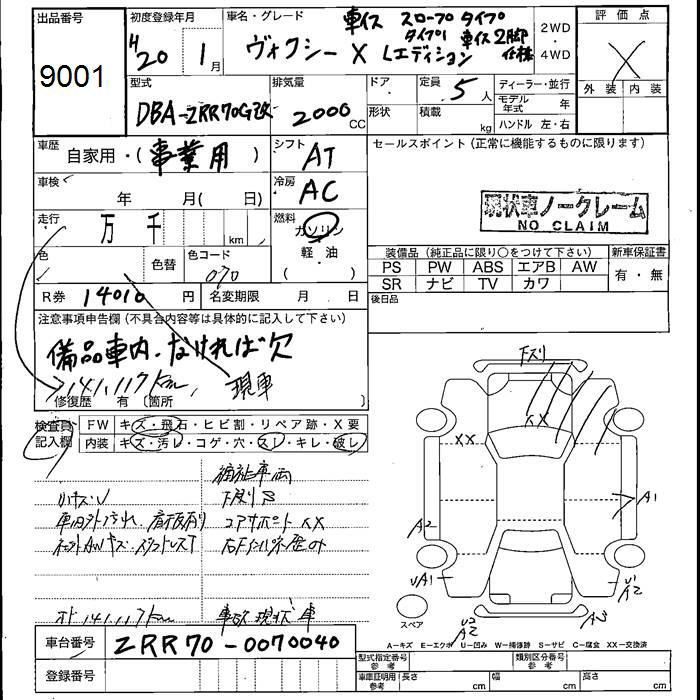 出品番号
9001
初度登録年月
H20 年 1 月
車名・グレード
車イス スロープタイプ
タイプ1 車イス2脚 仕様
ヴォクシー X Lエディション
2WD
・
4WD
評価点
X
外装 内装
型式
DBA-ZRR70G改
排気量
2000 CC
ドア
形状
定員 5 人
積載 kg
ディーラー・並行
モデル年式 年
ハンドル 左・右
車歴
自家用・(事業用)
シフト
AT
車検
年 月( 日)
冷房
AC
走行
万 千 km
燃料
ガソリン
軽・油
色
色替
色コード
070
R券 14010 円
名変期限 月 日
セールスポイント(正常に機能するものに限ります)
現状車ノークレーム
NO CLAIM
装備品(純正品に限り〇をつけて下さい)
新車保証書
PS PW ABS エアB AW
SR ナビ TV カワ
有・無
後日品
注意事項申告欄(不具合内容等は具体的に記入して下さい)
備品車内、なければ欠
141,117Km 現車
修復歴 有 〔箇所 〕
検査員
記入欄
FW キズ・飛石・ヒビ割・リペア跡・X要
内装 キズ・汚レ・コゲ・穴・スレ・キレ・破レ
福祉車両
下廻りS
コアサポートXX
車台番号 ZRR70-0070040
登録番号
下スリ
XX
XX
A1
A2
UA1
U1
A2
U2
A2
スペア
A-キズ E-エクボ U-凹み W-補修跡 S-サビ C-腐食 XX-交換済
型式指定番号
参考
類別区分番号
参考
車庫証明用
参考
長さ cm 幅 cm 高さ cm